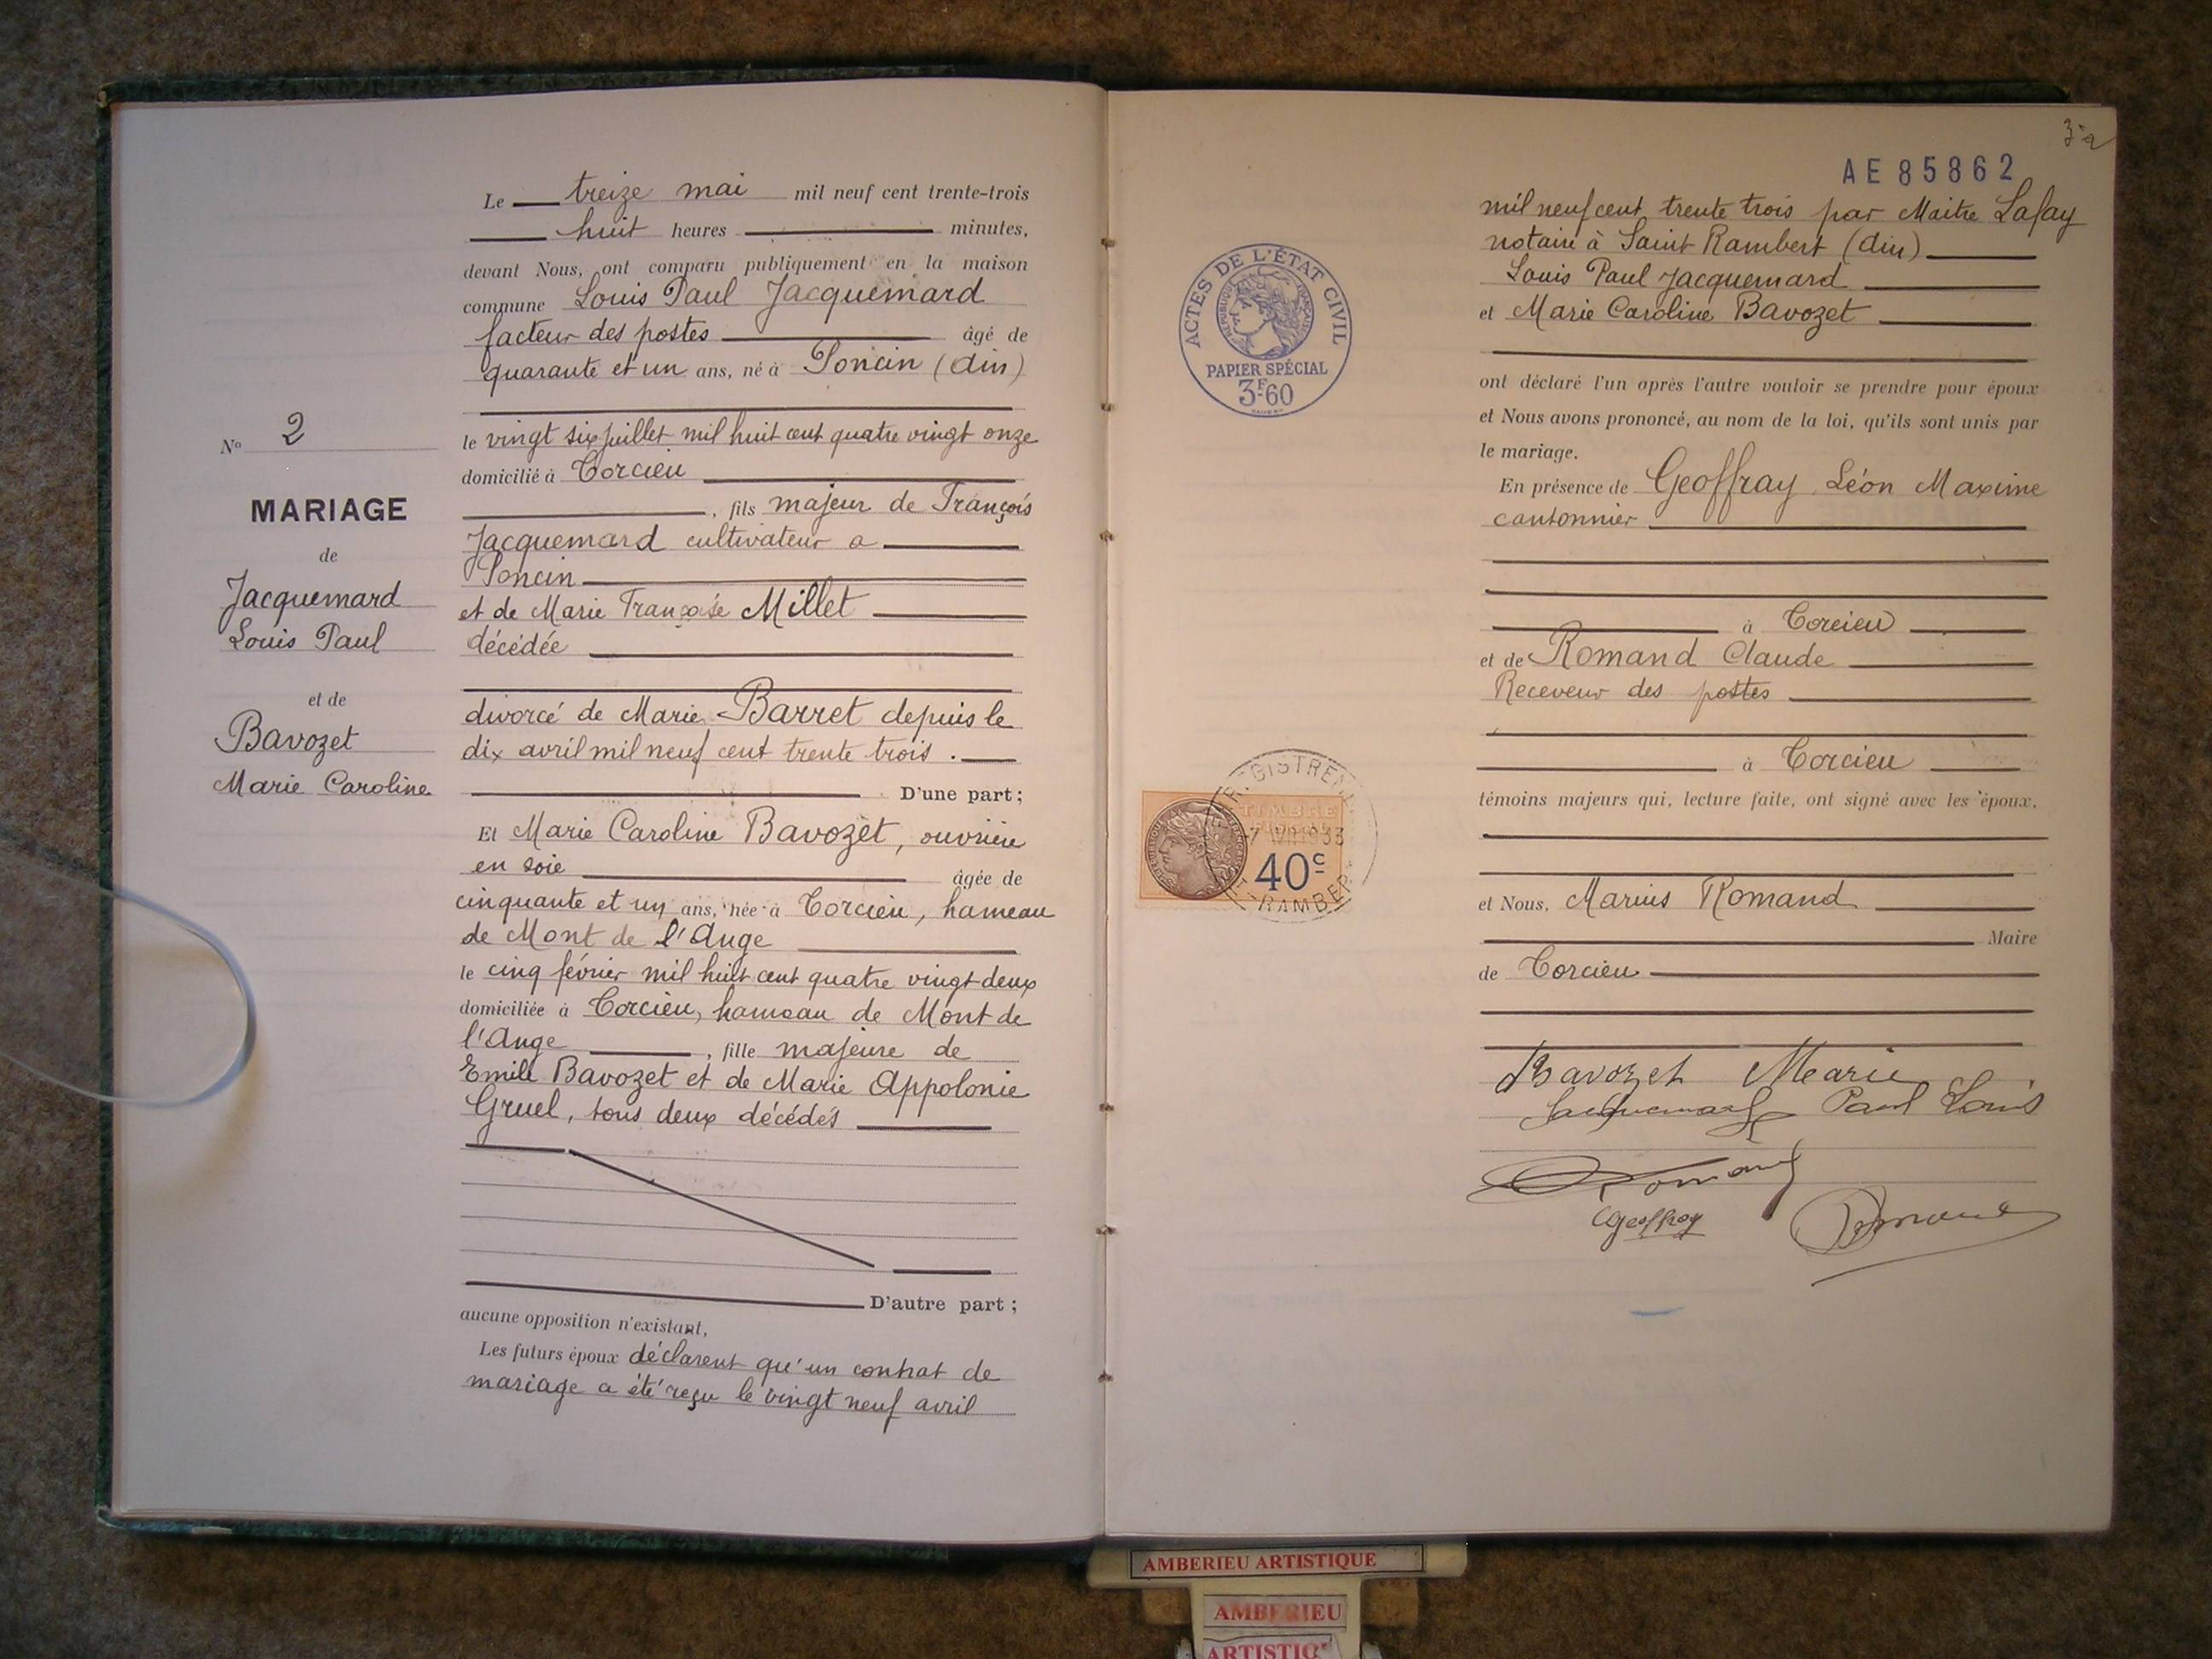 Le treize mai mil neuf cent trente-trois
huit heures minutes,
devant Nous, ont comparu publiquement en la maison
commune Louis Paul Jacquemard
facteur des postes âgé de
quarante et un ans, né à Poncin (Ain)
le vingt six juillet mil huit cent quatre vingt onze
domicilié à Torcieu
, fils majeur de François
Jacquemard cultivateur a
Poncin
et de Marie Françoise Millet
décédée
divorcé de Marie Barret depuis le
dix avril mil neuf cent trente trois .
D'une part ;
N° 2
MARIAGE
de
Jacquemard
Louis Paul
et de
Bavozet
Marie Caroline
Et Marie Caroline Bavozet, ouvrière
en soie âgée de
cinquante et un ans, née à Torcieu, hameau
de Mont de l'Ange
le cinq février mil huit cent quatre vingt deux
domiciliée à Torcieu, hameau de Mont de
l'Ange , fille majeure de
Emile Bavozet et de Marie Appolonie
Gruel, tous deux décédés
D'autre part ;
aucune opposition n'existant,
Les futurs époux déclarent qu'un contrat de
mariage a été reçu le vingt neuf avril
AE 85862
mil neuf cent trente trois par Maitre Lafay
notaire à Saint Rambert (Ain)
Louis Paul Jacquemard
et Marie Caroline Bavozet
ont déclaré l'un après l'autre vouloir se prendre pour époux
et Nous avons prononcé, au nom de la loi, qu'ils sont unis par
le mariage.
En présence de Geoffray Léon Maxime
cantonnier
à Torcieu
et de Romand Claude
Receveur des postes
à Torcieu
témoins majeurs qui, lecture faite, ont signé avec les époux,
et Nous, Marius Romand
Maire
de Torcieu
Bavozet Marie
Jacquemard Paul Louis
Romand
Geoffray
Romand
ACTES DE L'ÉTAT CIVIL
RÉPUBLIQUE FRANÇAISE
PAPIER SPÉCIAL
3F60
TIMBRE
1933
40c
RAMBERT
AMBERIEU ARTISTIQUE
AMBERIEU
ARTISTIQ